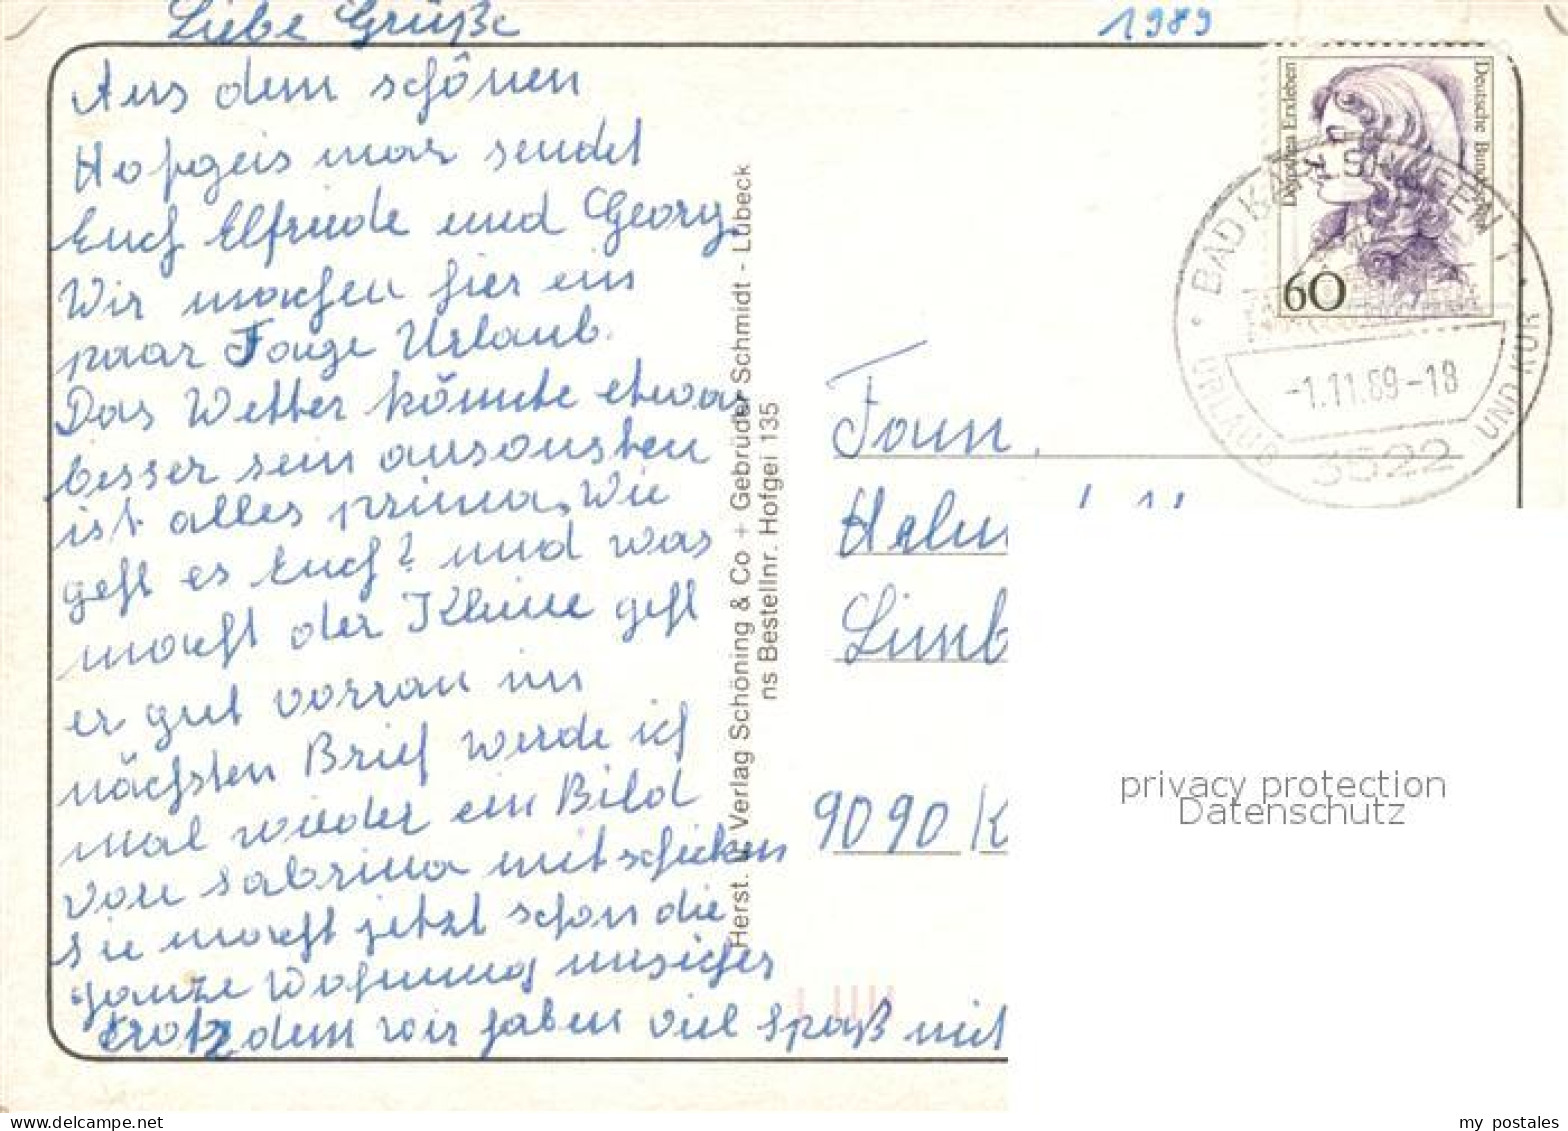 Liebe Grüße
Aus dem schönen
Hofgeismar sendet
Euch Elfriede und Georg.
Wir machen hier ein
paar Tage Urlaub.
Das Wetter könnte etwas
besser sein ansonsten
ist alles prima. Wie
geht es Euch? und was
macht der Kleine geht
er gut vorran im
nächsten Brief werde ich
mal wieder ein Bild
von Sabrina mitschicken
sie macht jetzt schon die
ganze Wohnung unsicher
trotzdem wir haben viel Spaß mit
Herst. u. Verlag Schöning & Co + Gebrüder Schmidt - Lübeck
ns Bestellnr. Hofgei 135
1989
Dorothea Erxleben
Deutsche Bundespost
60
BAD KARLSHAFEN 1
-1.11.89-18
URLAUB UND KUR
3522
Fam.
9090 K
privacy protection
Datenschutz
my postales